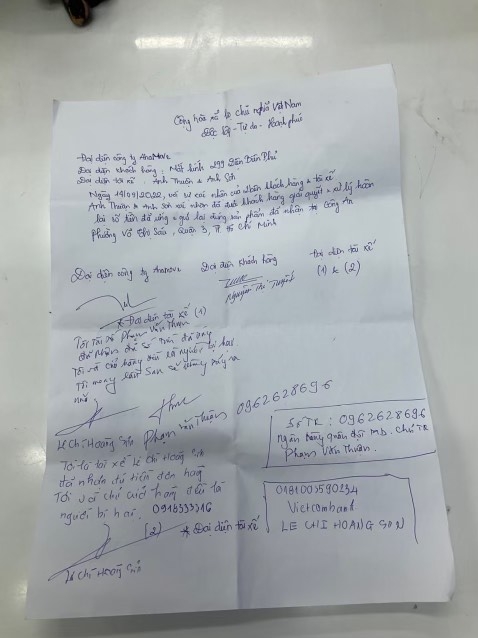 Cộng hòa xã hội chủ nghĩa Việt Nam
Độc lập - Tự do - Hạnh phúc
Đại diện công ty AhaMove
Đại diện khách hàng: Mắt kính 299 Điện Biên Phủ
Đại diện tài xế: Anh Thuận & Anh Sơn
Ngày 14/09/2022, với sự xác nhận của 2 bên khách hàng & tài xế
Anh Thuận & Anh Sơn xác nhận đã được khách hàng giải quyết & xử lý hoàn
lại số tiền đã ứng & gửi lại đúng sản phẩm đã nhận Công An
Phường Võ Thị Sáu, Quận 3, TP Hồ Chí Minh
Đại diện công ty AhaMove Đại diện khách hàng Đại diện tài xế
(1) & (2)
Nguyễn Thị
* Đại diện tài xế (1)
Tôi tài xế Phạm Văn Thuận
đã nhận đủ số tiền đã ứng
Tôi và chủ hàng đều là người bị hại
Tôi mong lần sau sẽ không xảy ra
nữa
Phạm Văn Thuận 0962628696
Lê Chí Hoàng Sơn
Tôi là tài xế Lê Chí Hoàng Sơn
đã nhận đủ tiền đơn hàng
Tôi và chị chủ hàng đều là
người bị hại. 0918333316
(2) * Đại diện tài xế
Lê Chí Hoàng Sơn
SốTK: 0962628696
ngân hàng quân đội MB. chủ TK
Phạm Văn Thuận.
Vietcombank
LE CHI HOANG SON